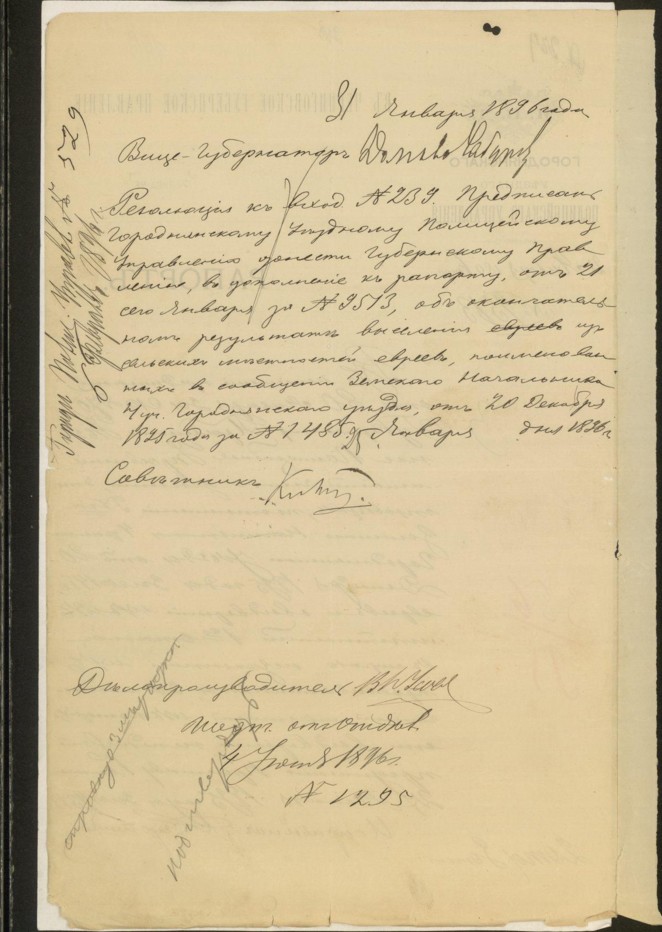 31 Января 1896 года
Вице-Губернаторъ
Резолюція къ вход. № 239. Предписать
Городнянскому Уѣздному Полицейскому
Управленію донести Губернскому Прав-
ленію, въ дополненіе къ рапорту, отъ 21
сего Января за № 9513, объ окончатель-
номъ результатѣ выселенія евреевъ изъ
сельскихъ мѣстностей евреевъ, поименован-
ныхъ въ сообщеніи Земскаго Начальника
4 уч. Городнянскаго уѣзда, отъ 20 Декабря
1895 года за № 1485. 25 Января дня 1896 г.
Совѣтникъ
Дѣлопроизводитель
4 1896 г.
№ 1295
Полиц. Управл. № 529
6 Февраля 1896 г.
подтвердить